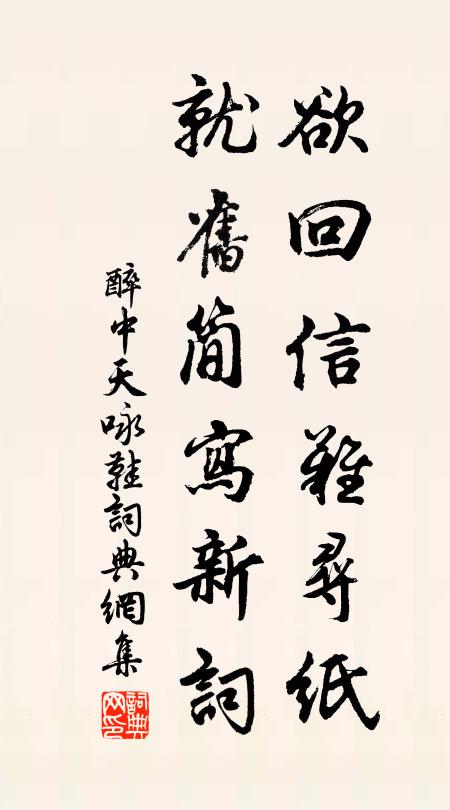 欲回信難尋紙
就舊簡寫新詞
醉中天咏鞋詞典網集
詞典网印